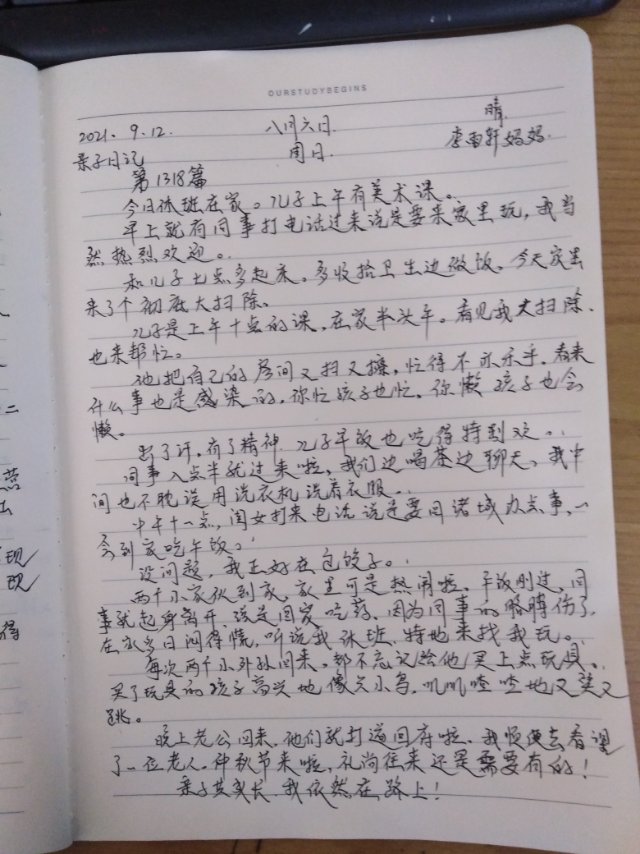 OURSTUDYBEGINS
2021. 9.12. 八月六日. 晴.
亲子日记 周日. 李雨轩妈妈.
第1318篇
今日休班在家。儿子上午有美术课。
早上就有同事打电话过来说是要来家里玩,我当
然热烈欢迎。
和儿子七点多起床。多收拾卫生边做饭。今天家里
来了个彻底大扫除.
儿子是上午十点的课.在家半头午。看见我大扫除.
也来帮忙。
他把自己的房间又扫又擦,忙得不亦乐乎.看来
什么事也是感染的.你忙孩子也忙.你懒孩子也会
懒。
出了汗.有了精神.儿子早饭也吃得特别欢。
同事八点半就过来啦,我们边喝茶边聊天。我中
间也不耽误用洗衣机洗着衣服。
中午十一点,闺女打来电话说是要回诸城办点事,一
会到家吃午饭。
没问题,我正好在包饺子。
两个小家伙到家.家里可是热闹啦.午饭刚过,同
事就起身离开.该是回家吃药.因为同事的胳膊伤了.
在家多日闷得慌,听说我休班.特地来找我玩。
每次两个小外孙回来.都不忘记给他买上点玩具。
买了玩具的孩子高兴地像只小鸟.叽叽喳喳地又笑又
跳。
晚上老公回来.他们就打道回府啦.我慢便去看望
了一位老人.仲秋节来啦,礼尚往来还是需要有的!
亲子共成长.我依然在路上!